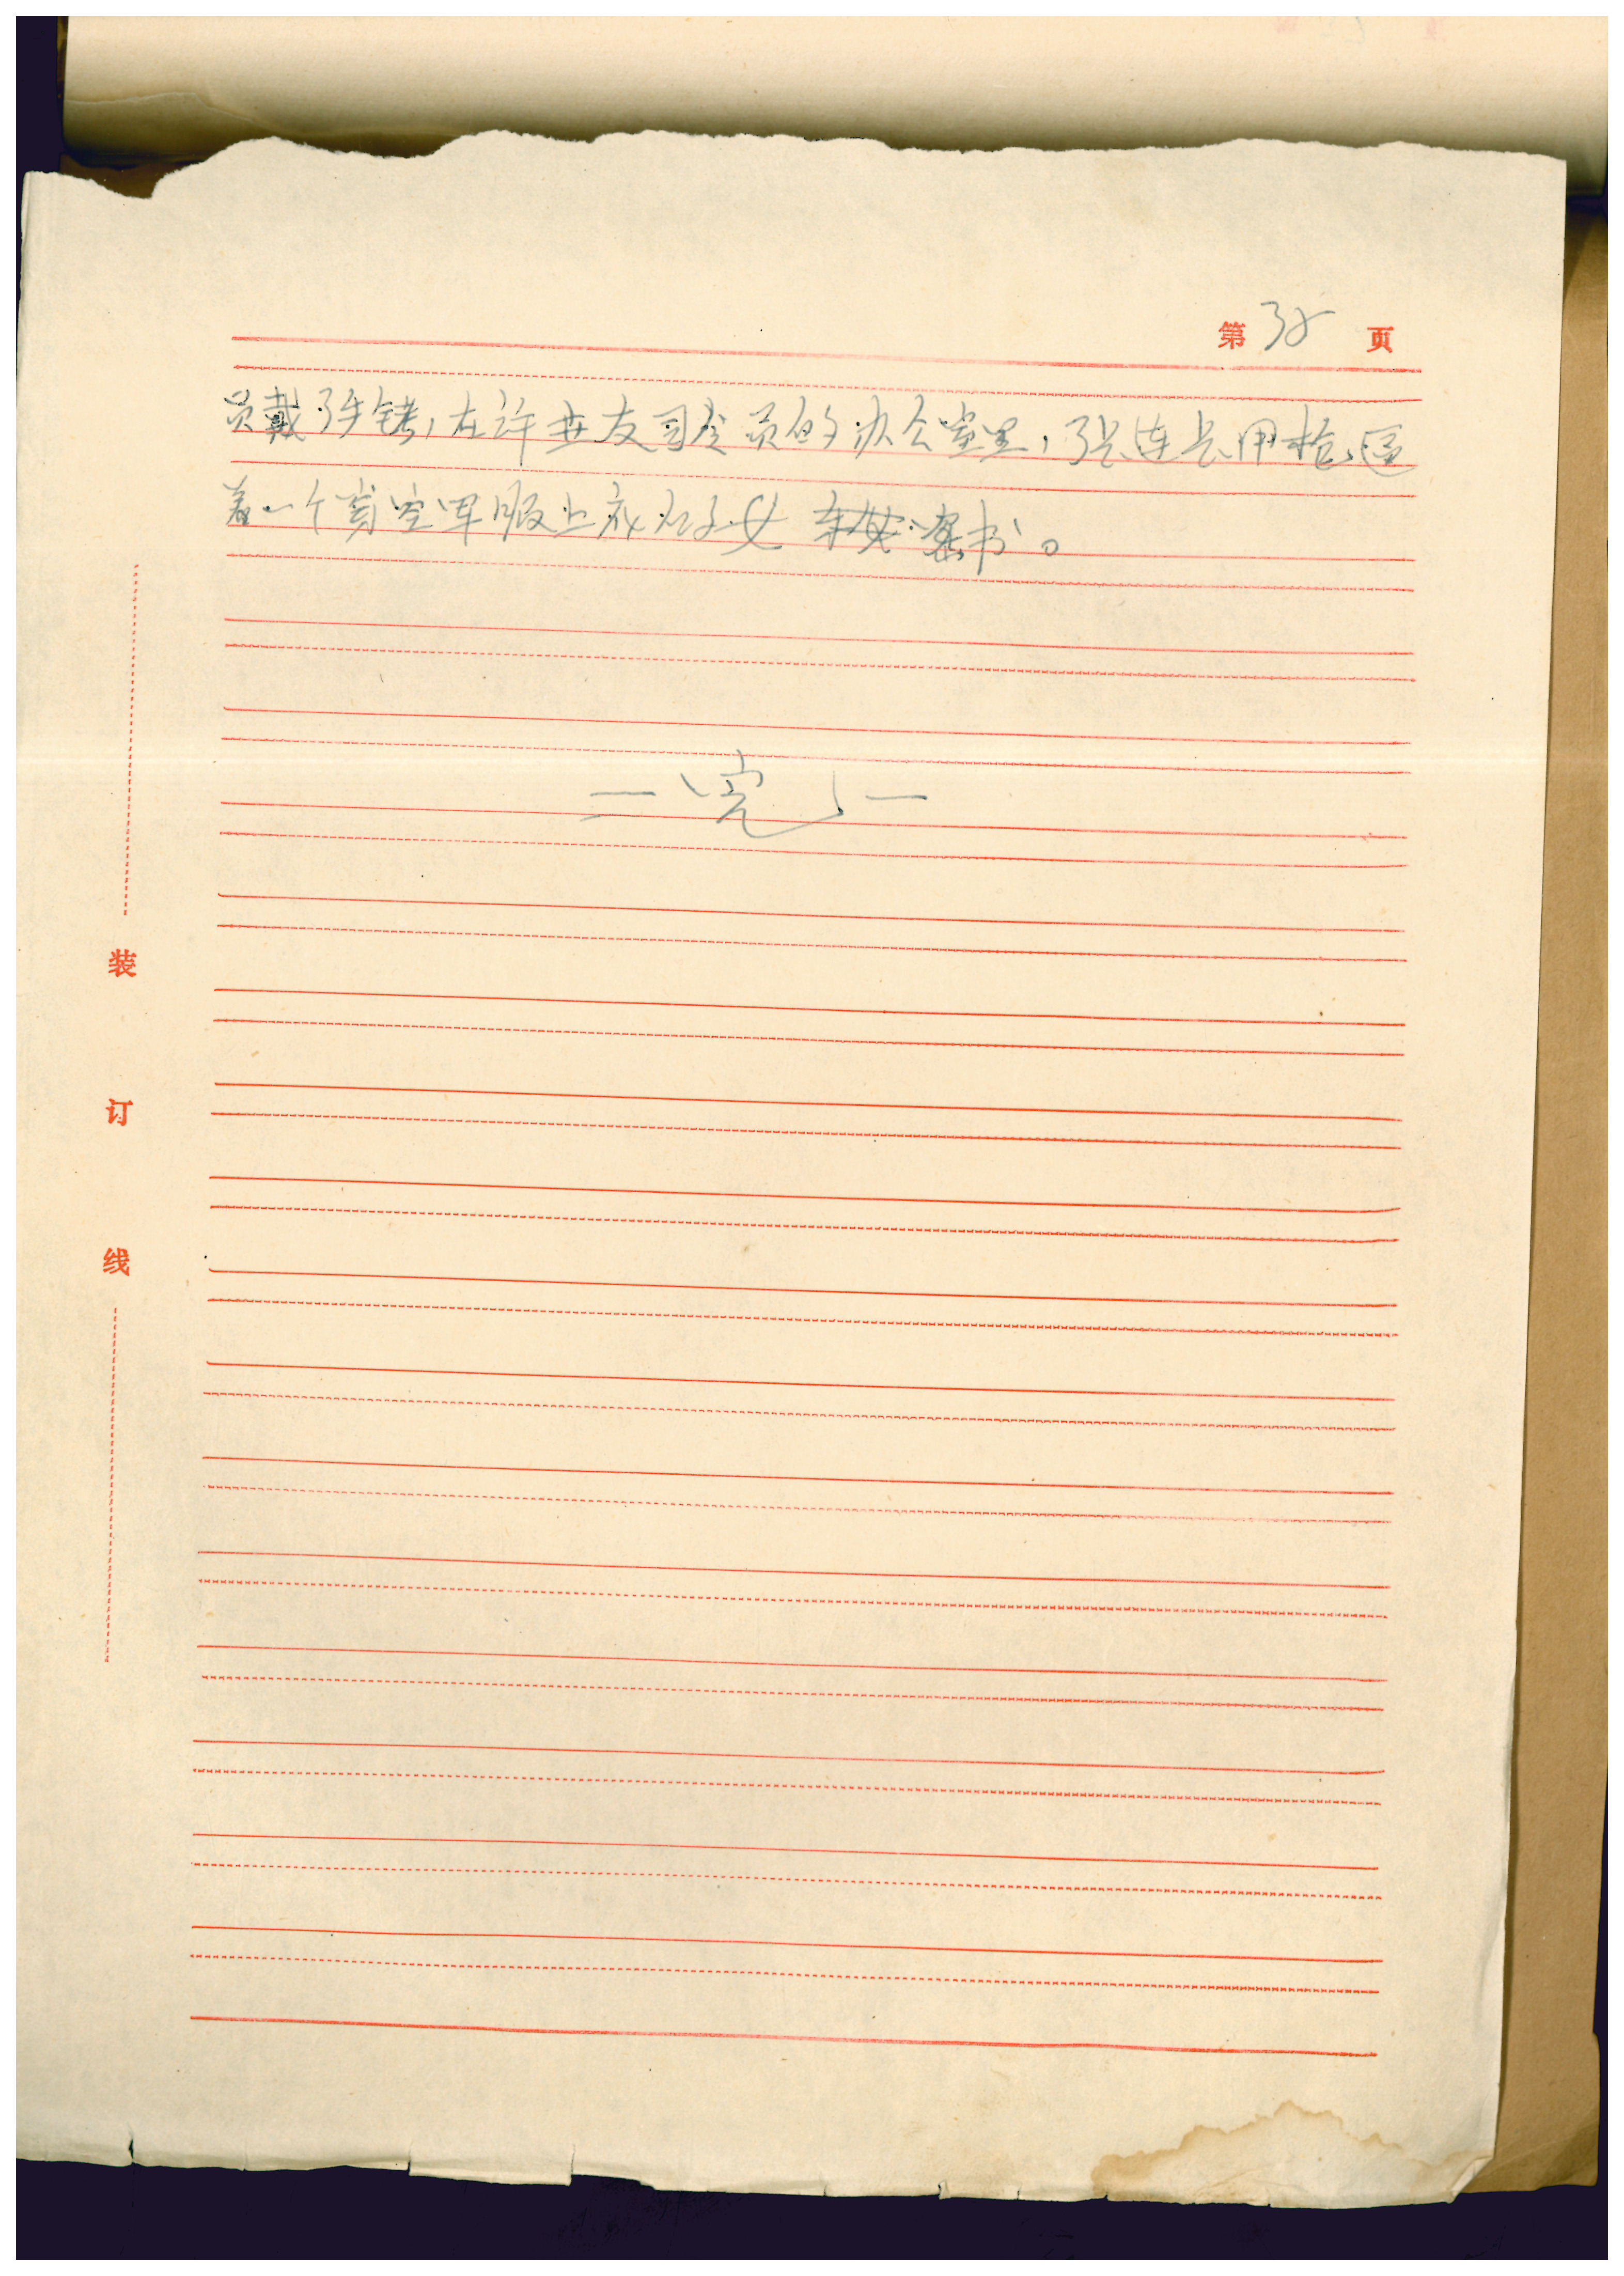 第38页
员戴了手铐,在许世友司令员的办公室里,张连长用枪逼
着一个穿空军服上衣的女秘书。
—完—
装
订
线